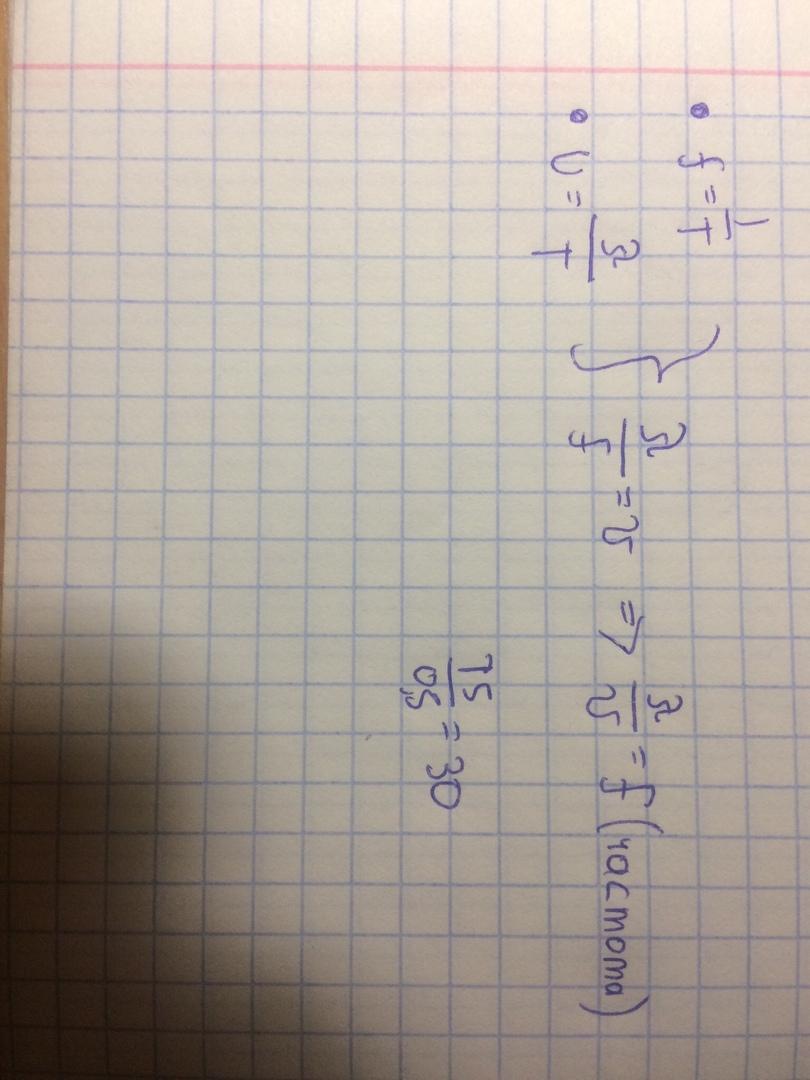 • f = 1/T
• υ = λ/T } λ/f = υ => λ/υ = f (частота)
15/0,5 = 30